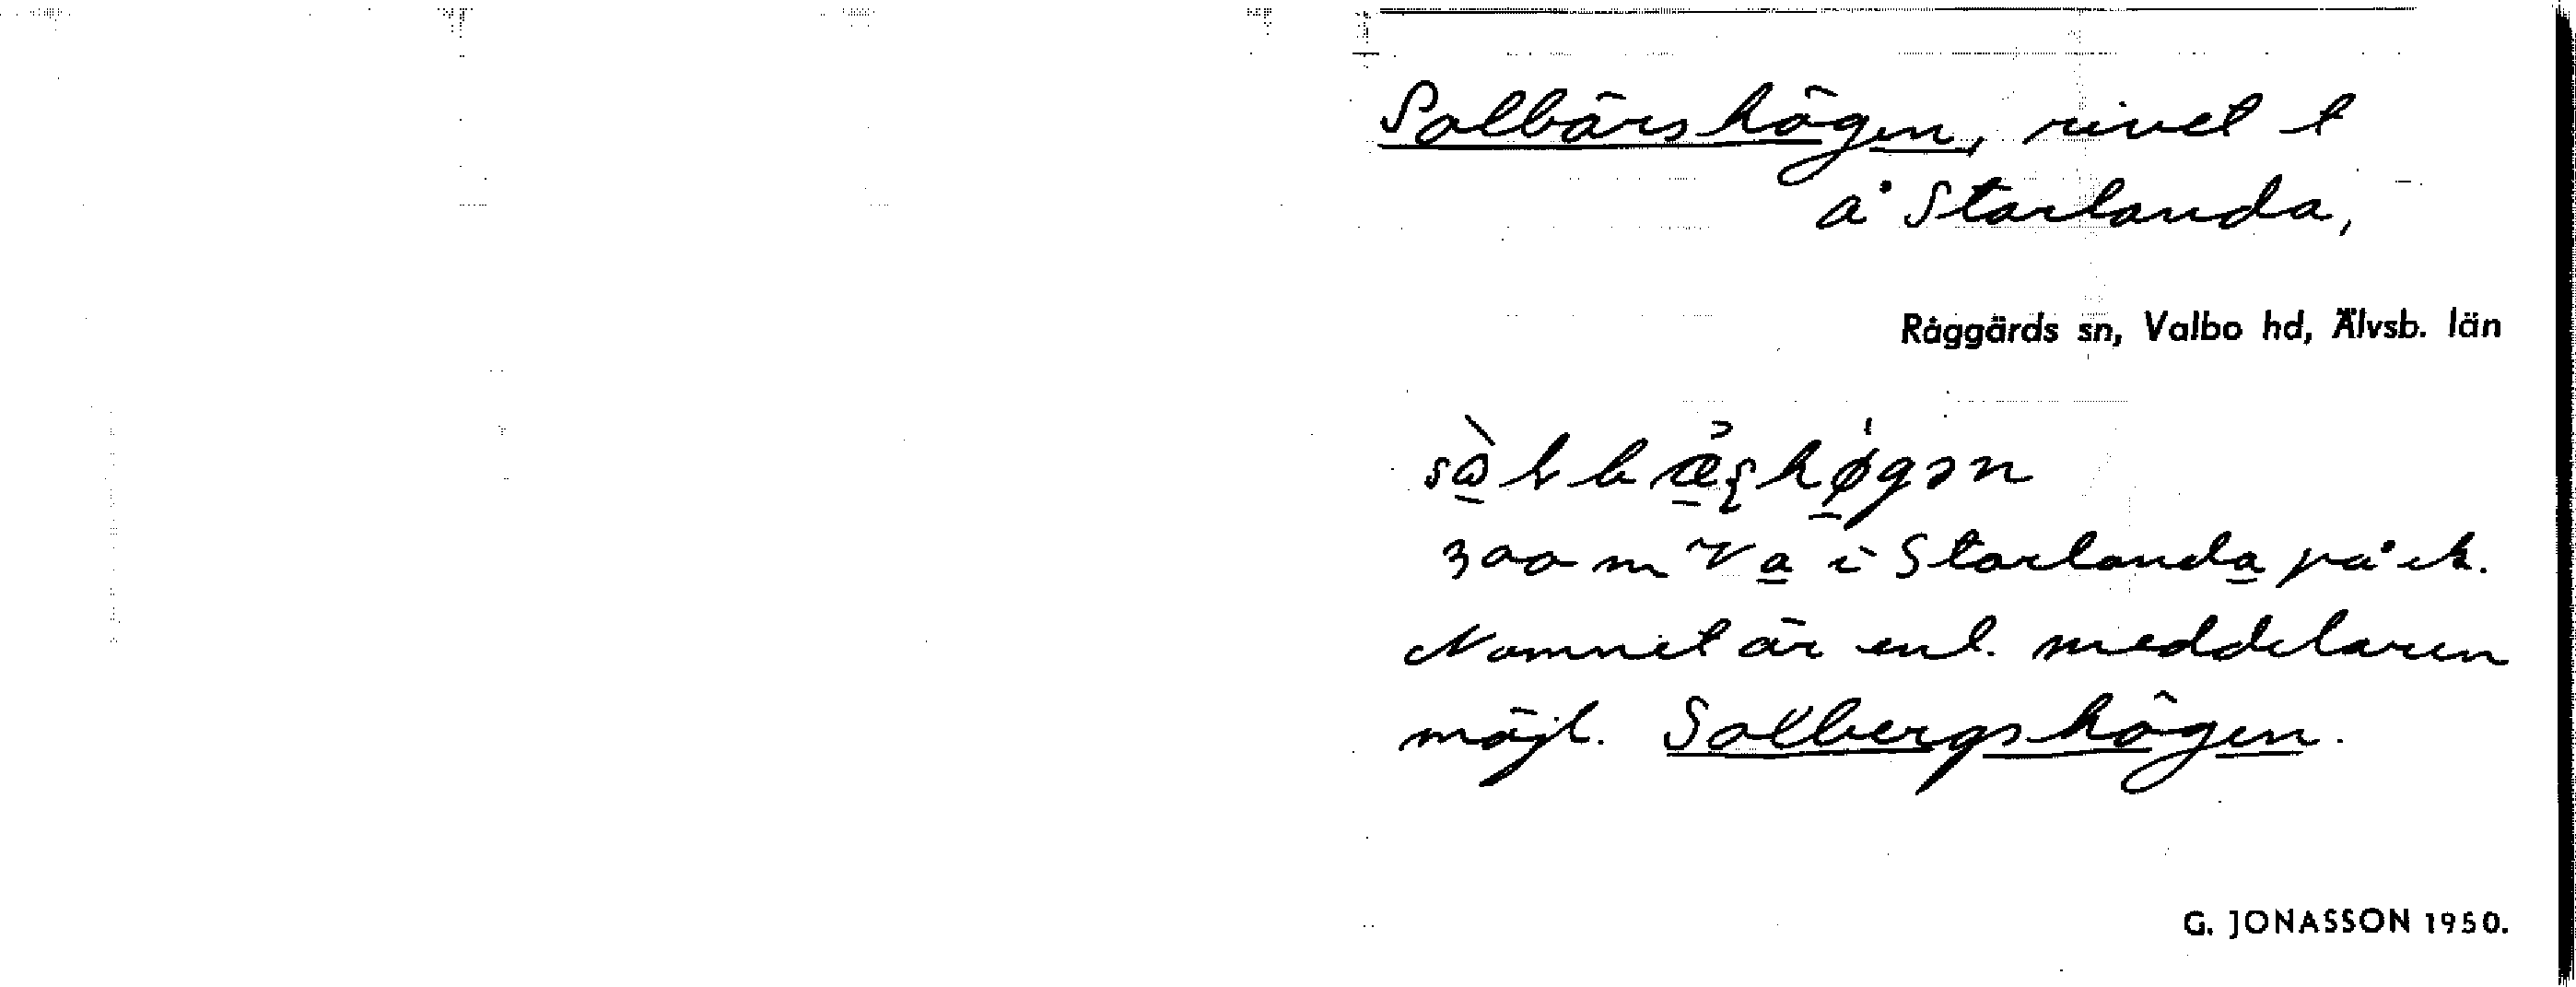 Solbärshögen, rivet t
å Starlanda,
Råggärds sn, Valbo hd, Älvsb. län
300 m V a i Starlanda på ek.
Namnet är enl. meddelaren
möjl. Solbergshögen.
G. JONASSON 1950.